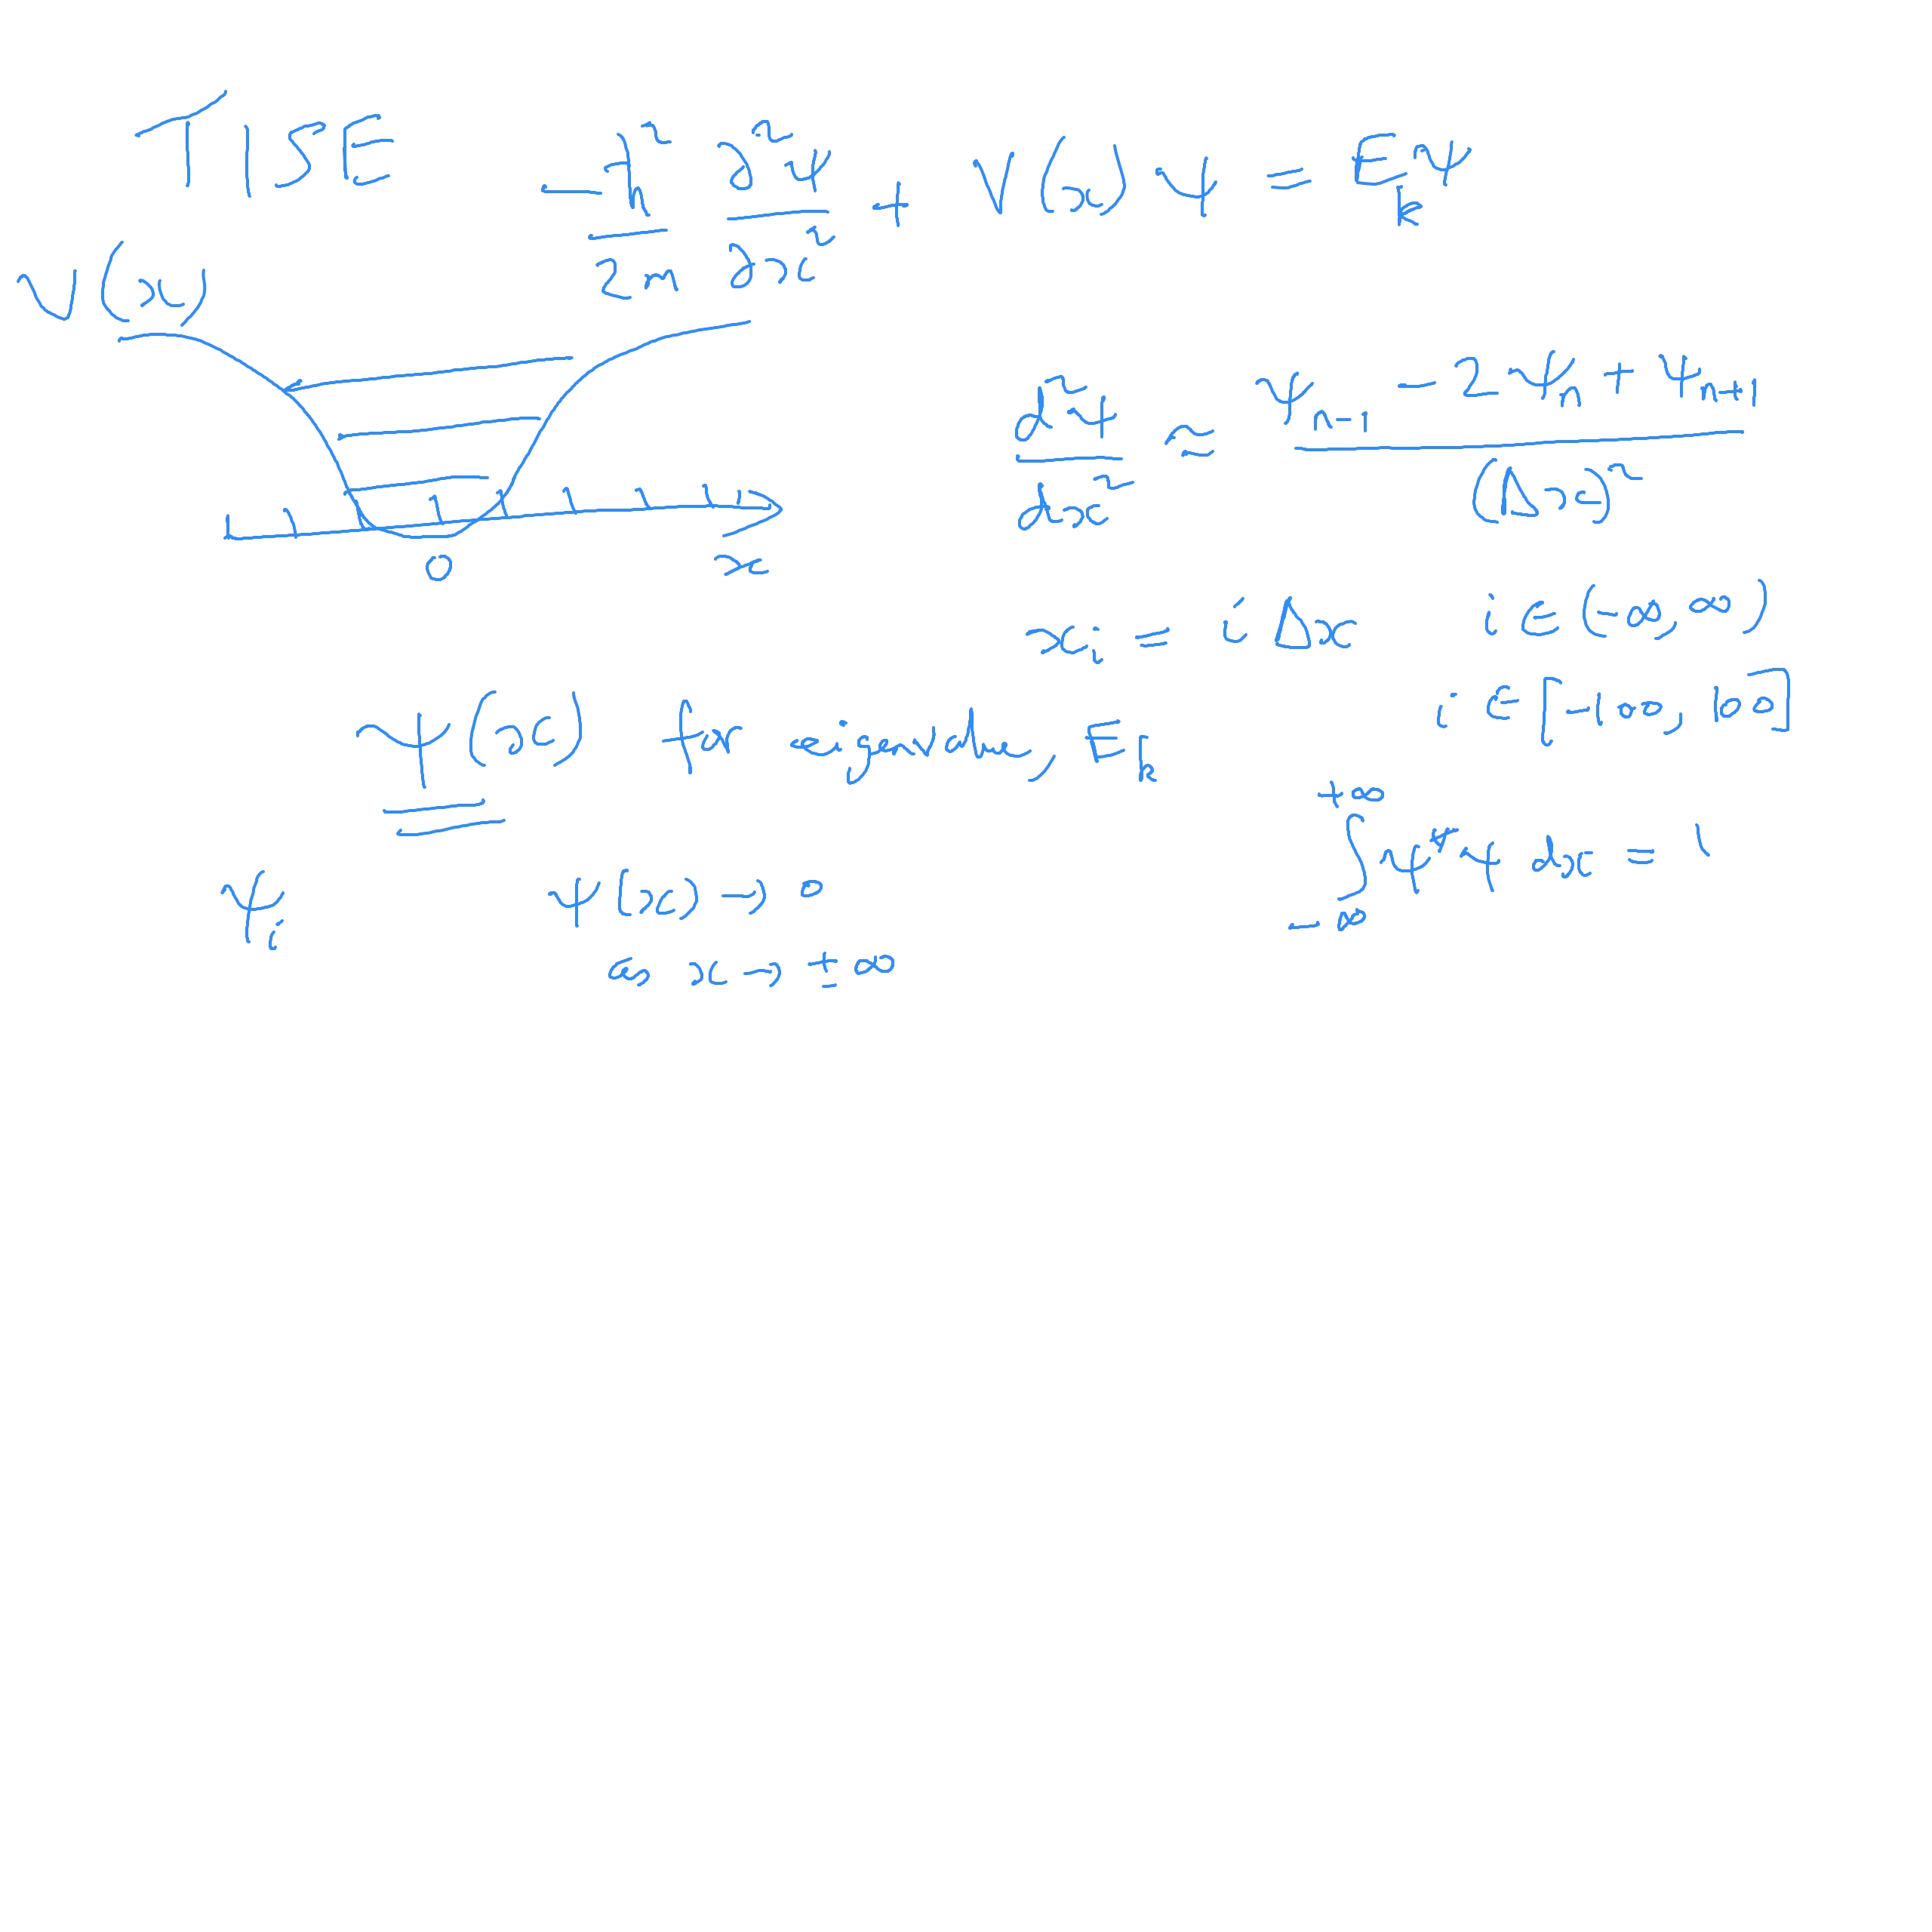 TISE -ħ²/2m ∂²ψ/∂x² + V(x)ψ = E_kψ
V(x)
d²ψ/dx² ≈ (ψ_{n-1} - 2ψ_n + ψ_{n+1})/(Δx)²
0 x
x_i = iΔx i ∈ (-∞, ∞)
i ∈ [-100, 100]
ψ(x) for eigenvalue, E_k
∫_{-∞}^{+∞} ψ*ψ dx = 1
ψ_i ψ(x) → 0
as x → ±∞